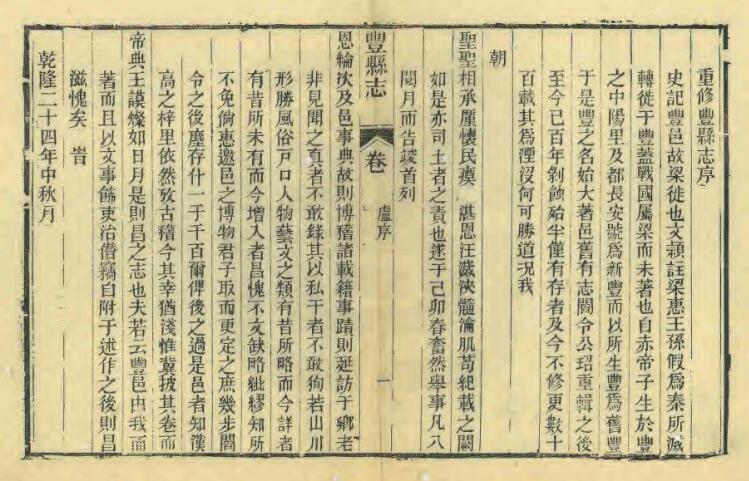 重修豐縣志序
史記豐邑故梁徙也文頴註梁惠王孫假爲秦所滅
轉徙于豐蓋戰國屬梁而未著也自赤帝子生於豐
之中陽里及都長安號爲新豐而以所生豐爲舊豐
于是豐之名始大著邑舊有志閻令公玿重輯之後
至今已百年剝蝕殆半僅有存者及今不修更數十
百載其爲湮沒何可勝道况我
朝
聖聖相承厪懷民瘼湛恩汪濊浹髓淪肌苟紀載之闕
如是亦司土者之責也遂于己卯春奮然舉事凡八
閱月而告竣首列
豐縣志
卷
盧序
一
恩綸次及邑事典故則博稽諸載籍事蹟則延訪于鄉老
非見聞之真者不敢錄其以私干者不敢狥若山川
形勝風俗戸口人物藝文之類有昔所略而今詳者
有昔所未有而今增入者昌愧不文缺略紕繆知所
不免倘惠邀邑之博物君子取而更定之庶幾步閻
令之後塵存什一于千百爾俾後之過是邑者知漢
高之梓里依然攷古稽今其幸猶淺惟冀披其卷而
帝典王謨燦如日月是則昌之志也夫若云豐邑由我而
著而且以文事飾吏治僭竊自附于述作之後則昌
滋愧矣旹
乾隆二十四年中秋月